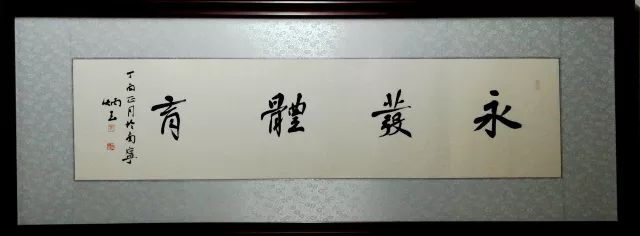 永發體育
丁酉正月於南寧